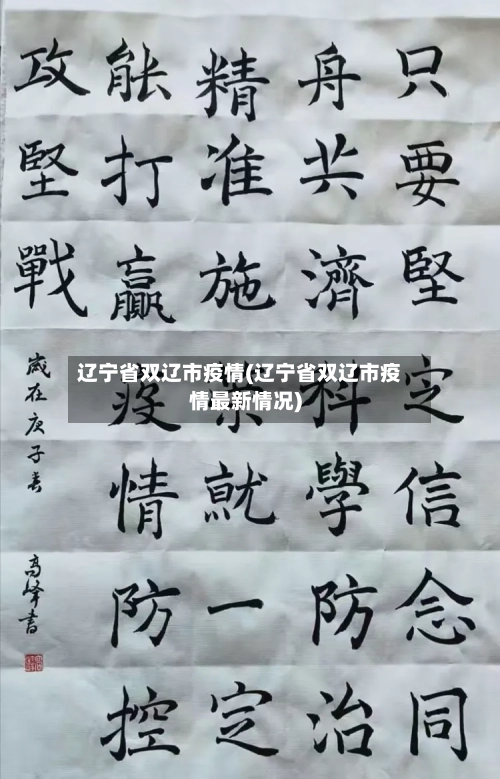 只要堅定信念同
舟共濟科學防治
精准施策就一定
能打贏疫情防控
攻堅戰
歲在庚子春
高峰書
辽宁省双辽市疫情(辽宁省双辽市疫
情最新情况)